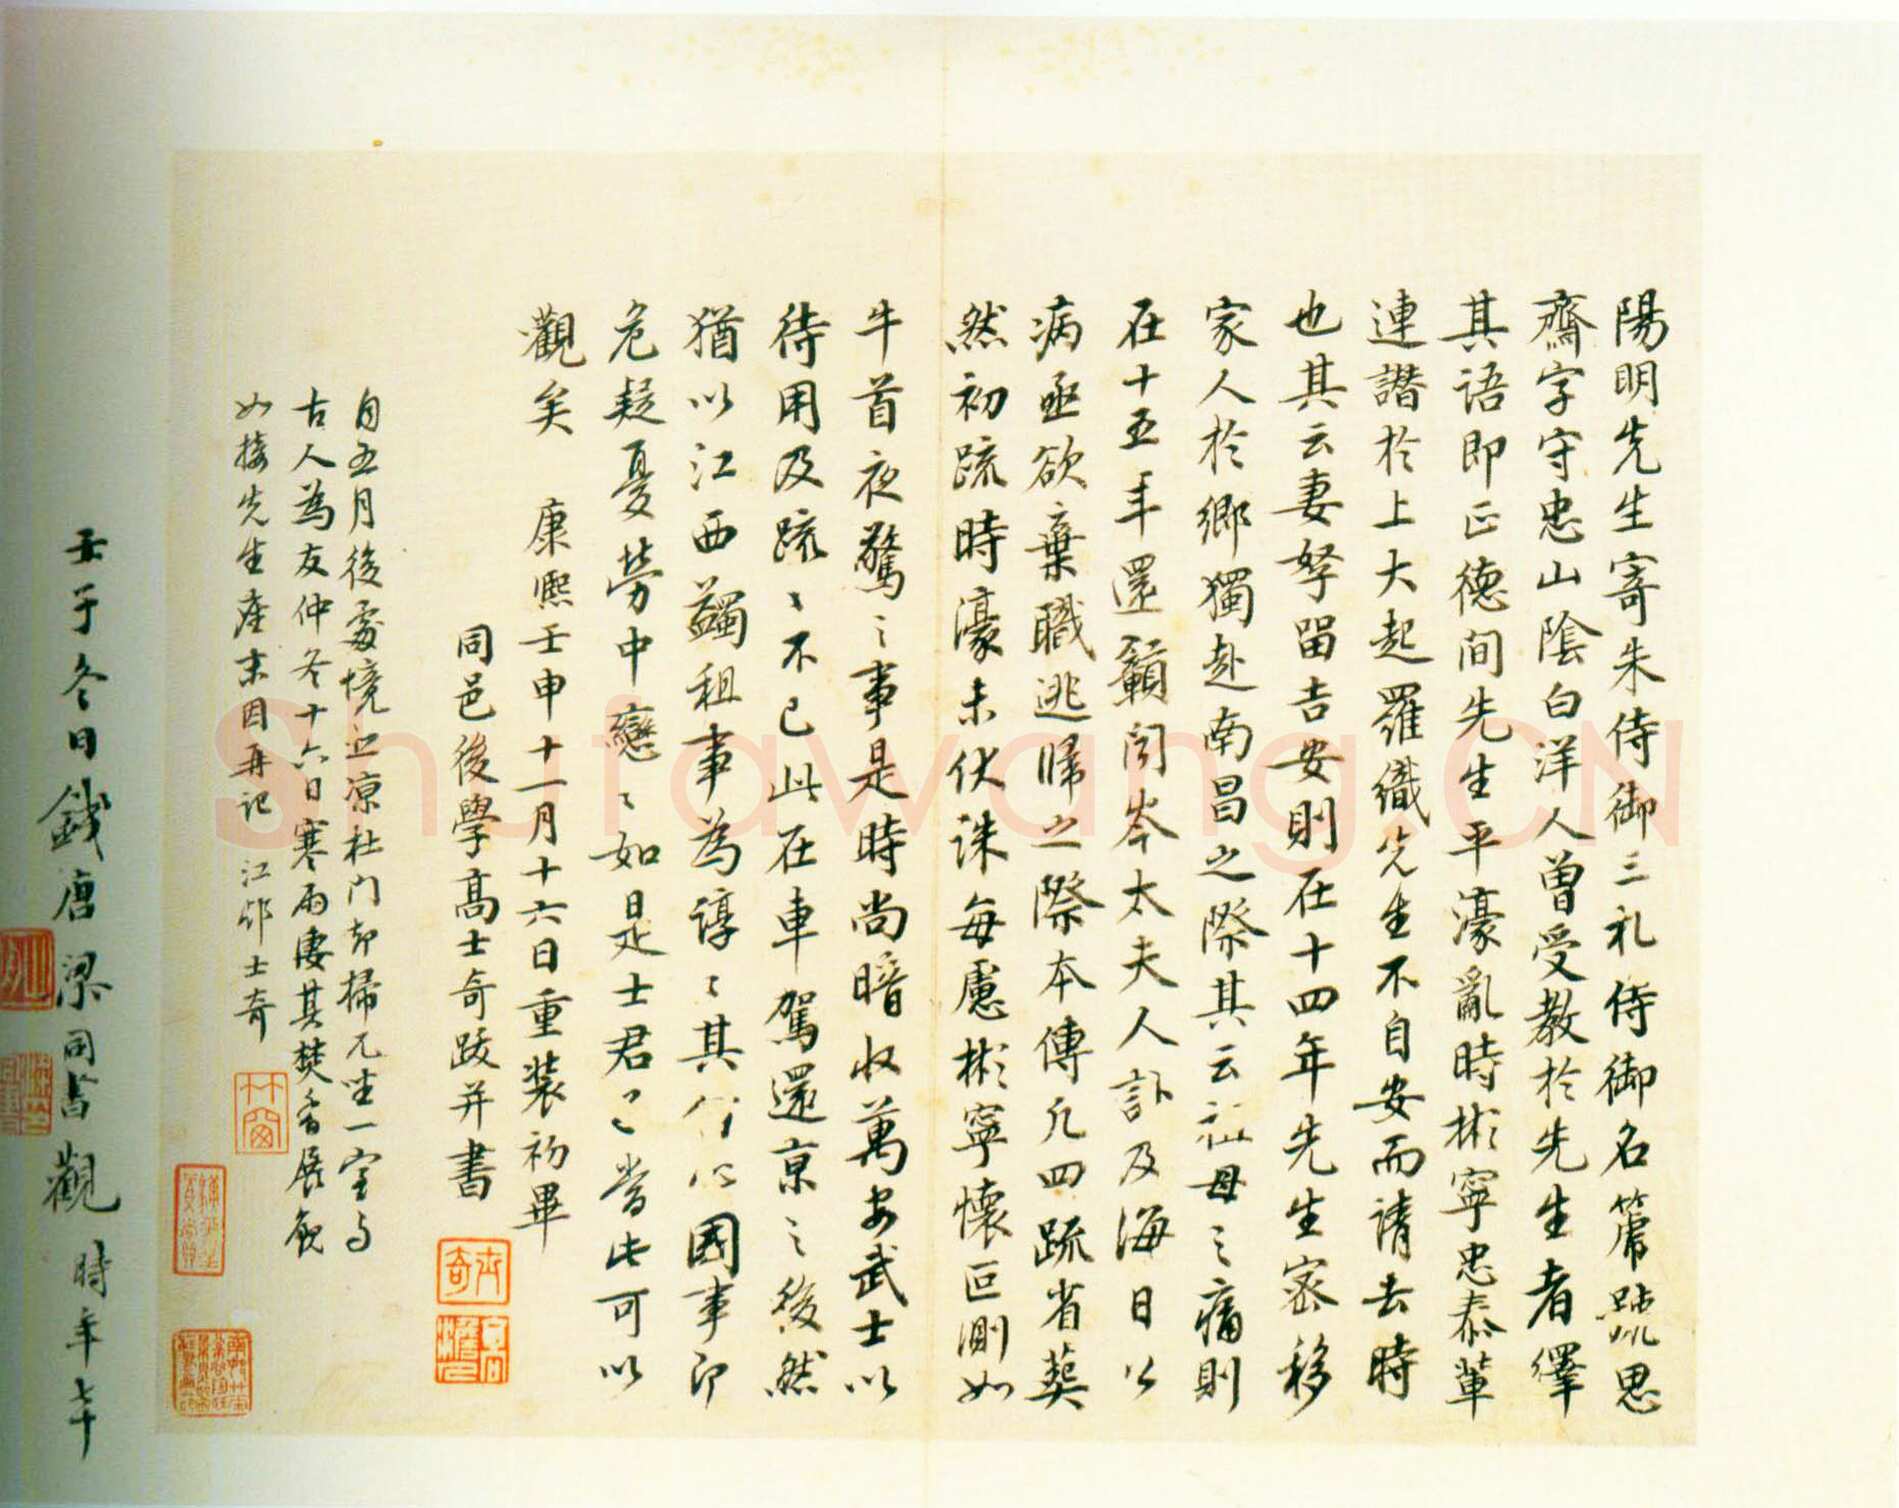 陽明先生寄朱侍御三札侍御名箎號思
齋字守忠山陰白洋人曽受教於先生者繹
其語即正德间先生平濠亂時彬寧忠泰輩
連譖於上大起羅織先生不自安而請去時
也其云妻孥留吉安則在十四年先生密移
家人於鄉獨赴南昌之際其云祖母之痛則
在十五年還贛闻岑太夫人訃及海日公
病亟欲棄職逃歸之際本傳凢四疏省葬
然初疏時濠未伏誅每慮彬寧懷叵測如
牛首夜驚之事是時尚暗收萬安武士以
待用及疏疏不已此在車駕還京之後然
猶以江西蠲租事為諄諄其 國事即
危疑憂勞中戀戀如是士君子當此可以
觀矣 康熙壬申十一月十六日重装初畢
同邑後學髙士奇跋并書
自五月後處境立凉杜门却掃兀坐一室与
古人為友仲冬十六日寒雨凄其焚香展觀
如接先生座末因再记 江邨士奇
竹窗
士奇
壬子冬日錢唐梁同書觀時年七十
Shufawang.CN